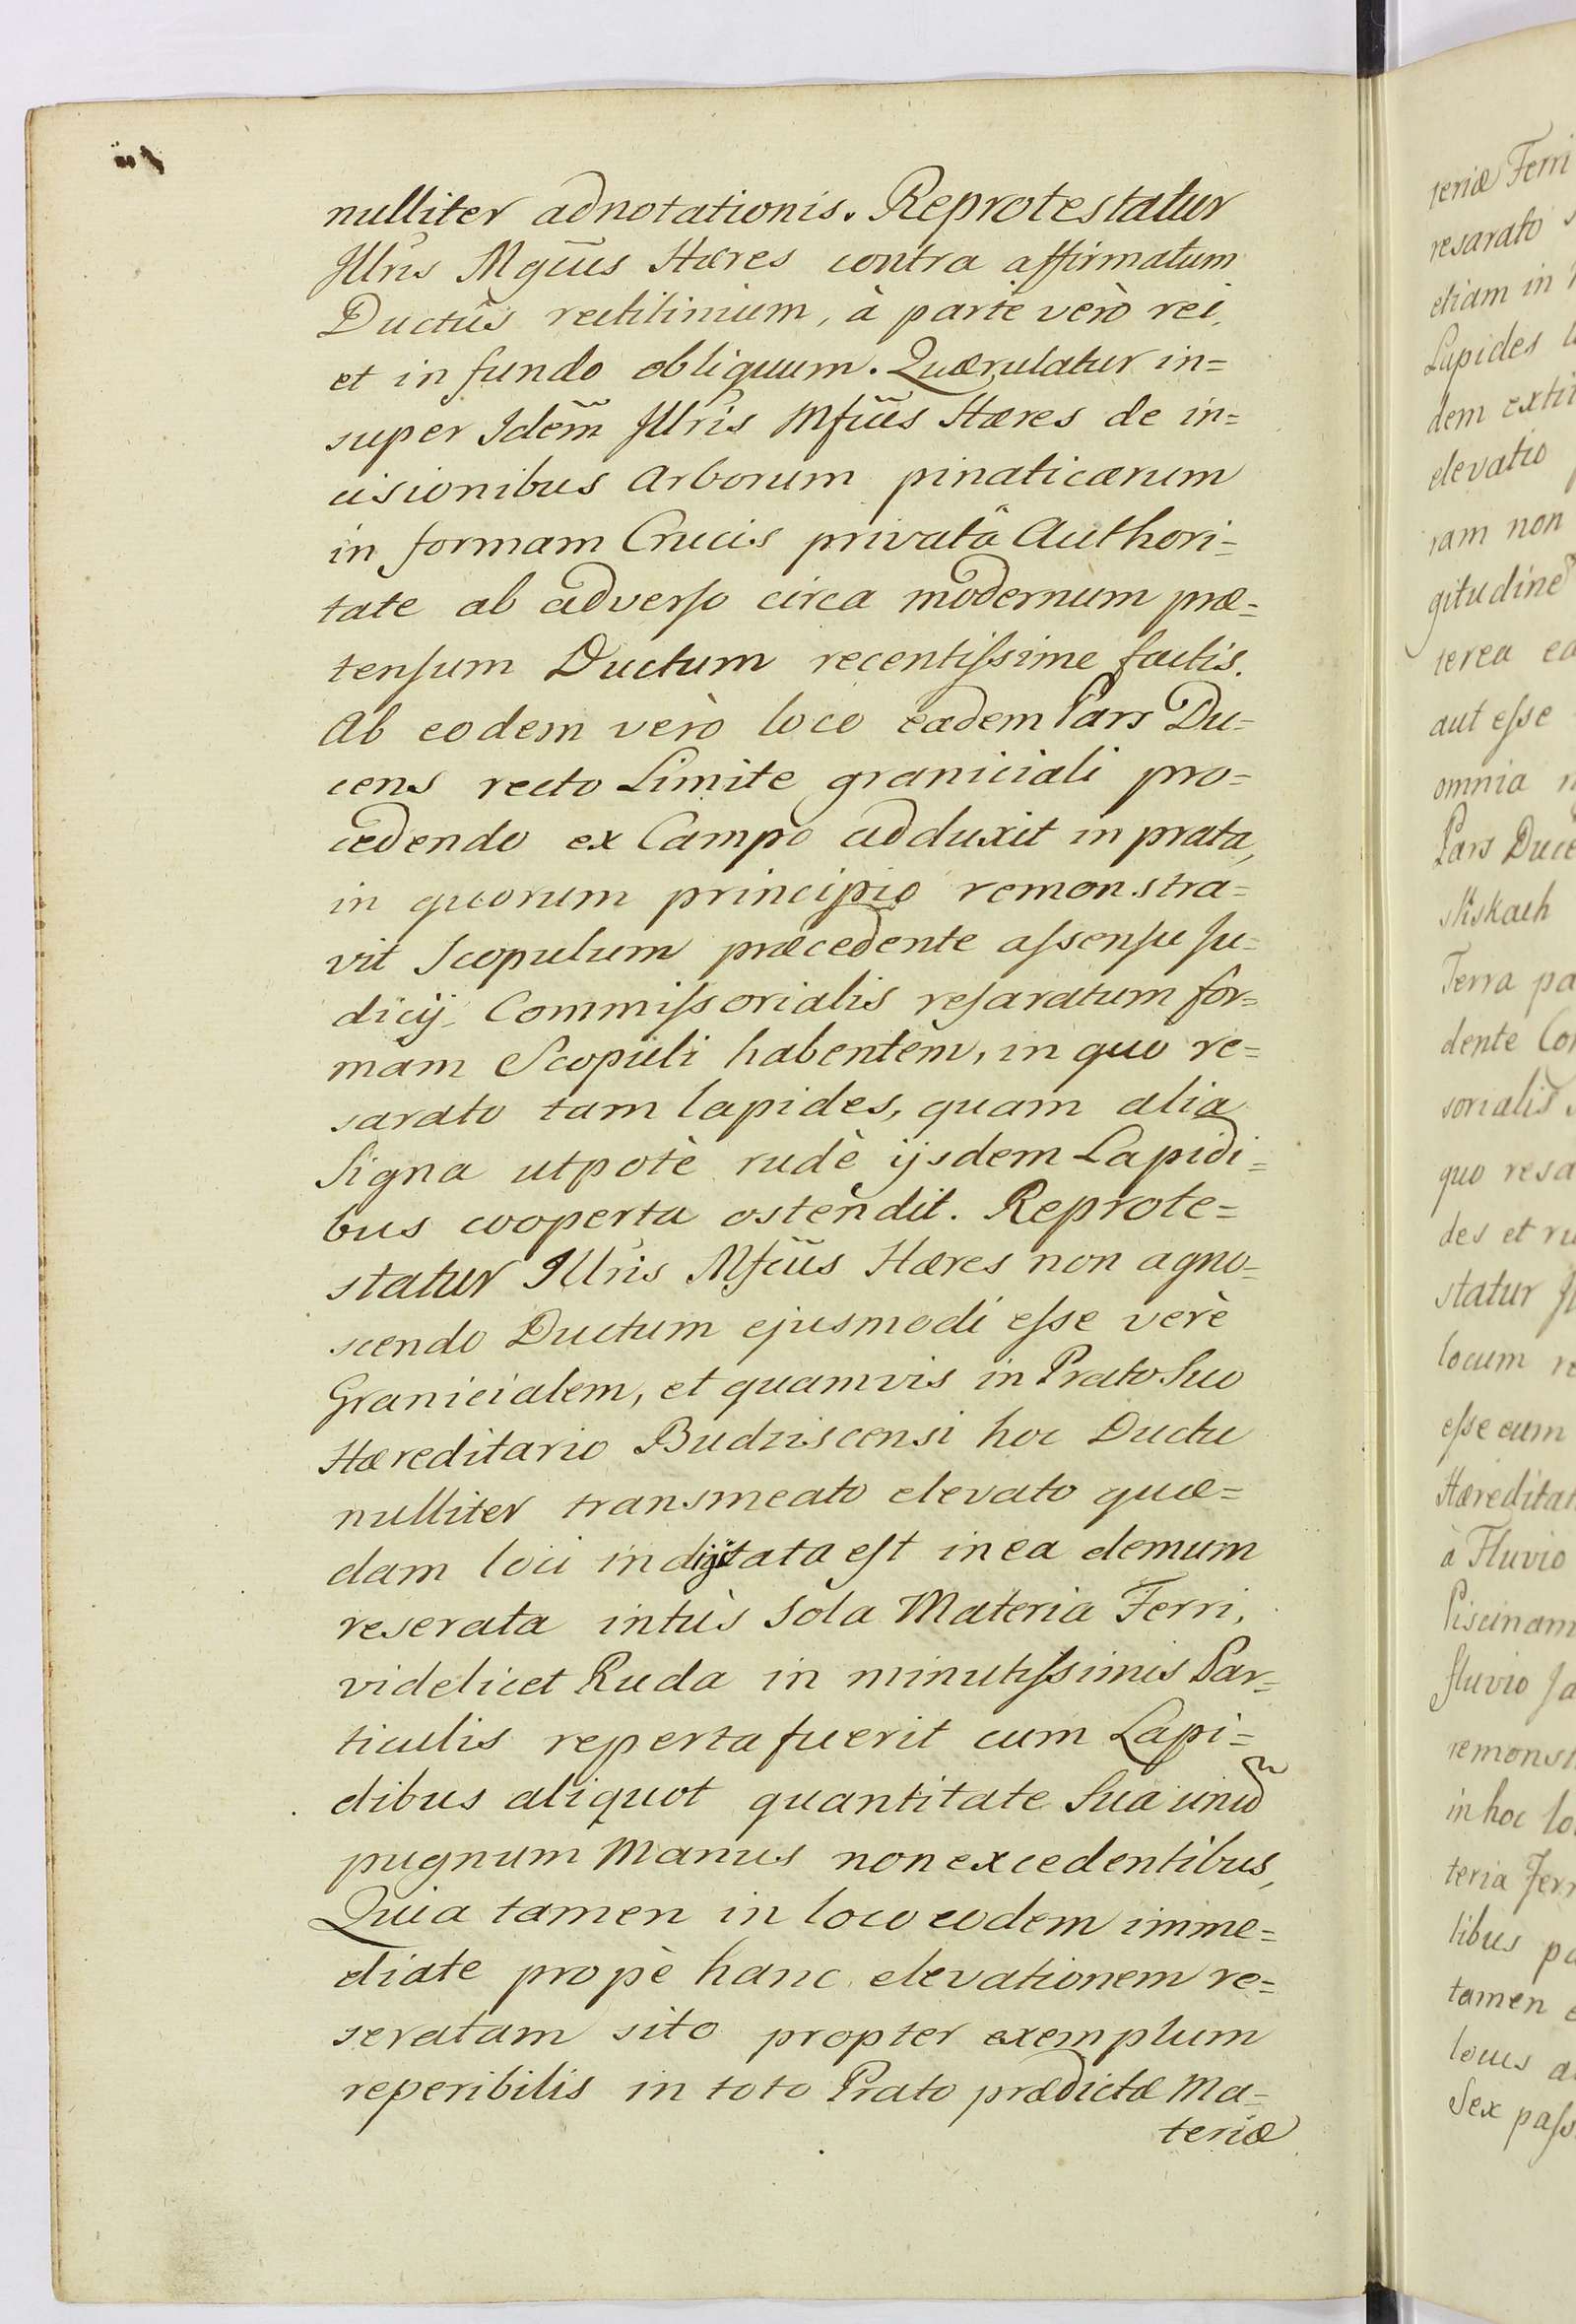 nulliter adnotationis. Reprotestatur
Jllris Mgcus Hæres contra affirmatum
Ductûs rectilinium, à parte verò rei,
et in fundo obliquum. Quærulatur in=
super Idem̃ Jllris Mfcus Hæres de in=
cisionibus Arborum pinaticarum
in formam Crucis privatâ Authori=
tate ab adverso circa modernum præ=
tensum Ductum recentissime factis.
Ab eodem verò loco eadem Pars Du=
cens recto Limite graniciali pro=
cedendo ex Campo adduxit in prata,
in quorum principio remonstra=
vit Scopulum præcedente assensu Ju=
dicij Commissorialis resaratum for=
mam Scopuli habentem, in quo re=
sarato tam lapides, quam alia
Signa utpotè rudè ijsdem Lapidi=
bus cooperta ostendit. Reprote=
statur Jllris Mfcus Hæres non agno=
scendo Ductum ejusmodi esse verè
Granicialem, et quamvis in Prato Suo
Hæreditario Budziscensi hoc Ductu
nulliter transmeato elevato quæ=
dam loci indigitata est in ea demum
reserata intùs sola Materia Ferri,
videlicet Ruda in minutissimis Par=
ticulis reperta fuerit cum Lapi=
dibus aliquot quantitate Sua unũ
pugnum Manus non excedentibus,
Quia tamen in loco eodem imme=
diate propè hanc elevationem re=
seratam sito propter exemplum
reperibilis in toto Prato prædictæ Ma=
teriæ
teriæ Ferri
resarato
etiam in
Lapides
dem exti
elevatio
ram non
gitudine
terea ea
aut esse
omnia
Pars Duce
Niskach
Terra pa
dente Co
sorialis
quo resa
des et ru
statur
locum re
esse cum
Hæredita
à Fluvio
Piscinam
fluvio Ja
remonst
in hoc lo
teria Ferr
libus pa
tamen e
locus a
Sex pass